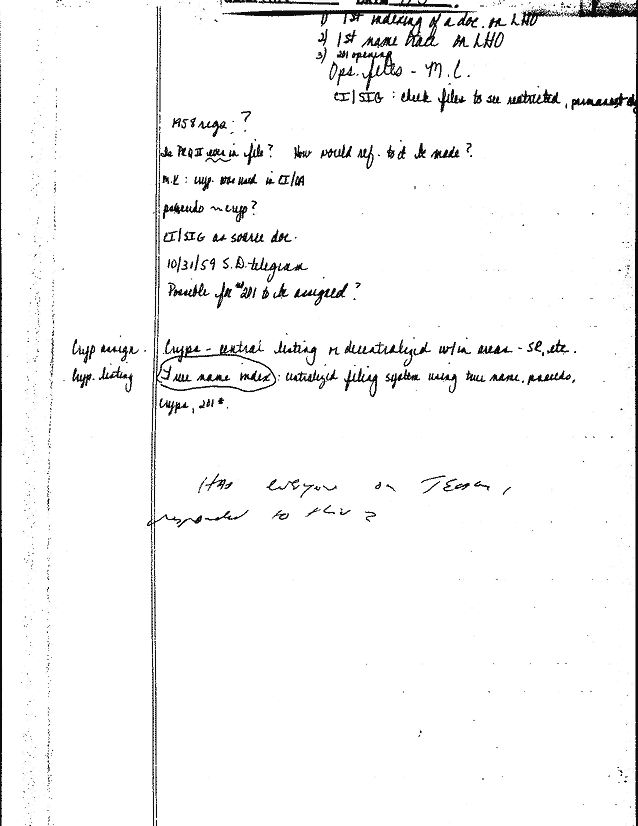 1) 1st indexing of a doc. on LHO
2) 1st name trace on LHO
3) 201 opening
Ops. files - M.C.
CI/SIG : check files to see restricted, permanent
1958 regs. ?
Is PRQ II ever in file? How would ref. to it be made?
M.K : cryp. was used in CI/OA
pseudo ~ cryp?
CI/SIG as source doc.
10/31/59 S.D. telegram
Possible for # 201 to be assigned?
Cryp assign. Cryps - central listing or decentralized w/in areas - SR, etc.
Cryp. listing True name index : centralized filing system using true name, pseudo,
cryps, 201 #.
Has everyone on Team,
responded to this ?